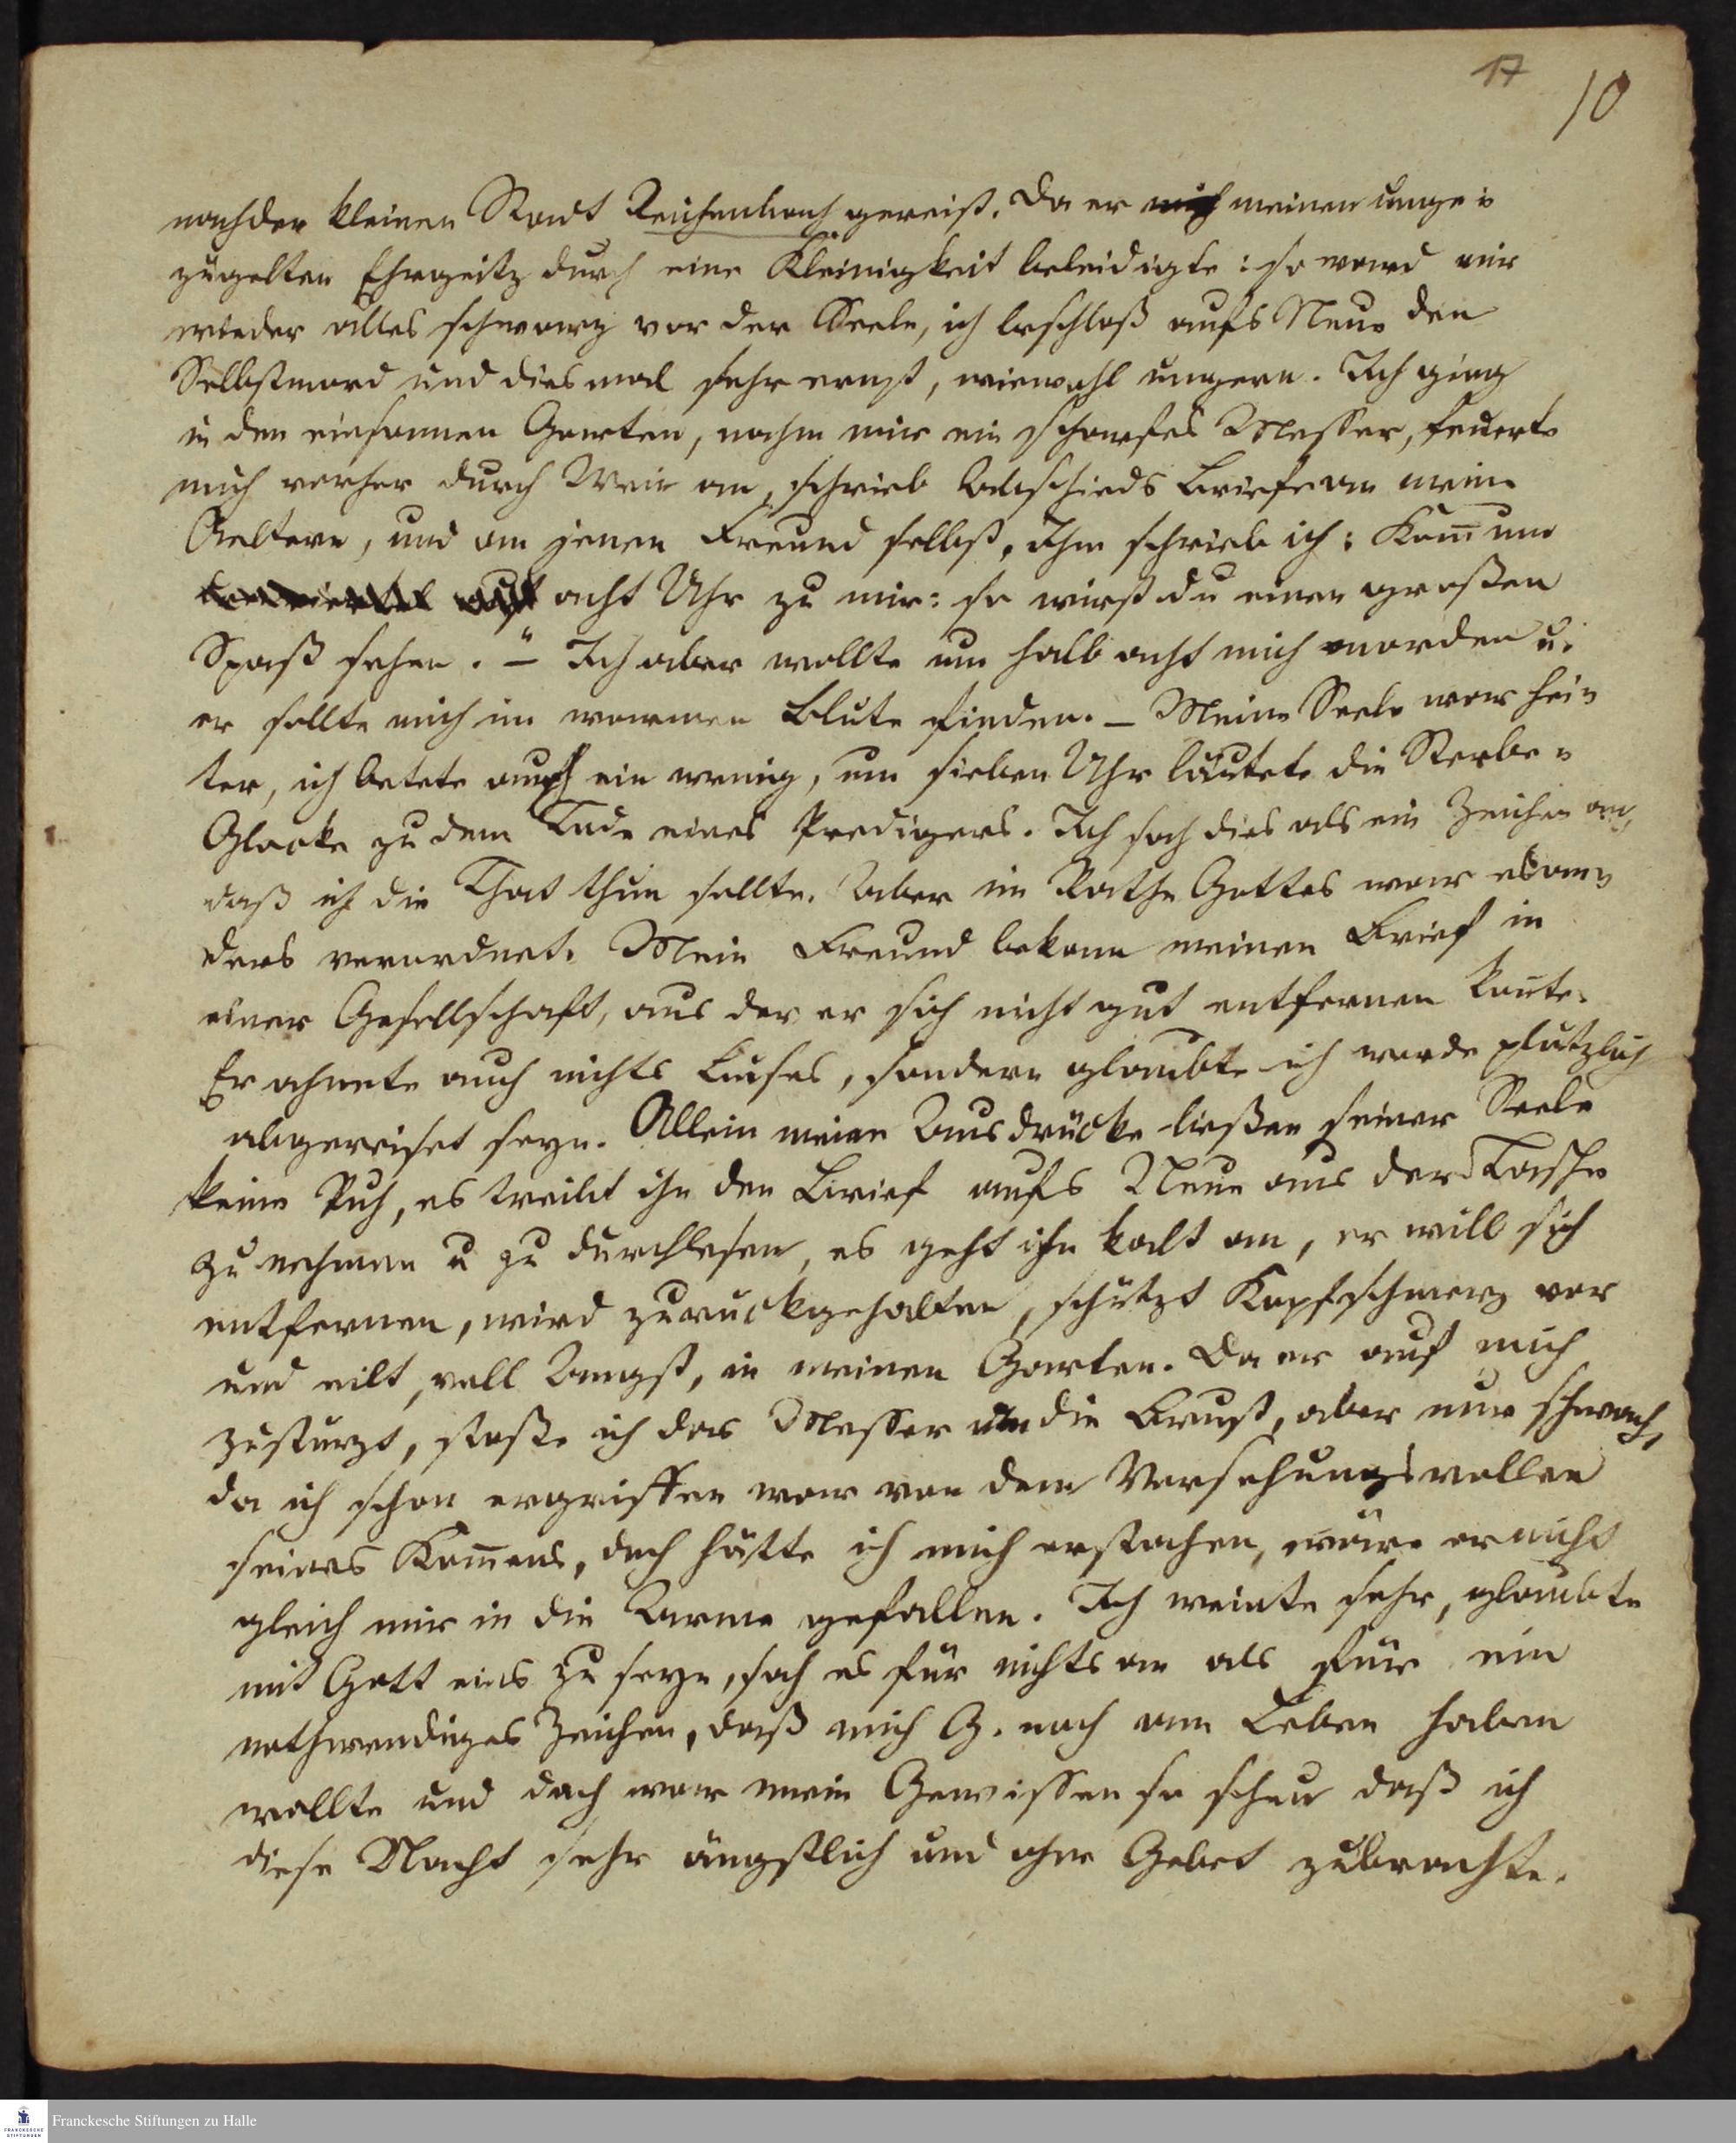 17
10
nach der kleinen Stadt Reichenbach gereist. Da er meinen unge=
zügelten Ehrgeitz durch eine Kleinigkeit beleidigte: so ward mir
wieder alles schwarz vor der Seele, ich beschloß aufs Neue den
Selbstmord und diesmal sehr ernst, wiewohl ungern. Ich ging
in den einsamen Garten, nahm mir ein scharfes Messer, feuerte
mich vorher durch Wein an, schrieb Abschieds Briefe an meine
Aeltern, und an jenen Freund selbst. Ihm schrieb ich: Kom̄ um
acht Uhr zu mir: so wirst du einen großen
Spaß sehen." – Ich aber wollte um halb acht mich morden u.
er sollte mich im warmen Blute finden. – Meine Seele war hei=
ter, ich betete auch ein wenig, um sieben Uhr läutete die Sterbe=
Glocke zu dem Tode eines Predigers. Ich sah dies als ein Zeichen an,
daß ich die That thun sollte. Aber im Rathe Gottes war es an=
ders verordnet. Mein Freund bekam meinen Brief in
einer Gesellschaft, aus der er sich nicht gut entfernen konte.
Er ahnete auch nichts Böses, sondern glaubte ich werde plötzlich
abgereiset seyn. Allein meine Ausdrücke ließen seiner Seele
keine Ruh, es treibt ihn den Brief aufs Neue aus der Tasche
zu nehmen u zu durchlesen, es geht ihn kalt an, er will sich
entfernen, wird zurückgehalten, schützt Kopfschmerz vor
und eilt, voll Angst, in meinen Garten. Da er auf mich
zustürzt, stoße ich das Messer in die Brust, aber nur schwach,
da ich schon ergriffen war von dem Versehungsvollen
seines Kom̄ens, doch hätte ich mich erstochen, wäre er nicht
gleich mir in die Arme gefallen. Ich weinte sehr, glaubte
mit Gott eins zu seyn, sah es für nichts an als für ein
nothwendiges Zeichen, daß mich G. noch am Leben haben
wollte und doch war mein Gewissen so scheu daß ich
diese Nacht sehr ängstlich und ohne Gebet zubrachte.
Franckesche Stiftungen zu Halle